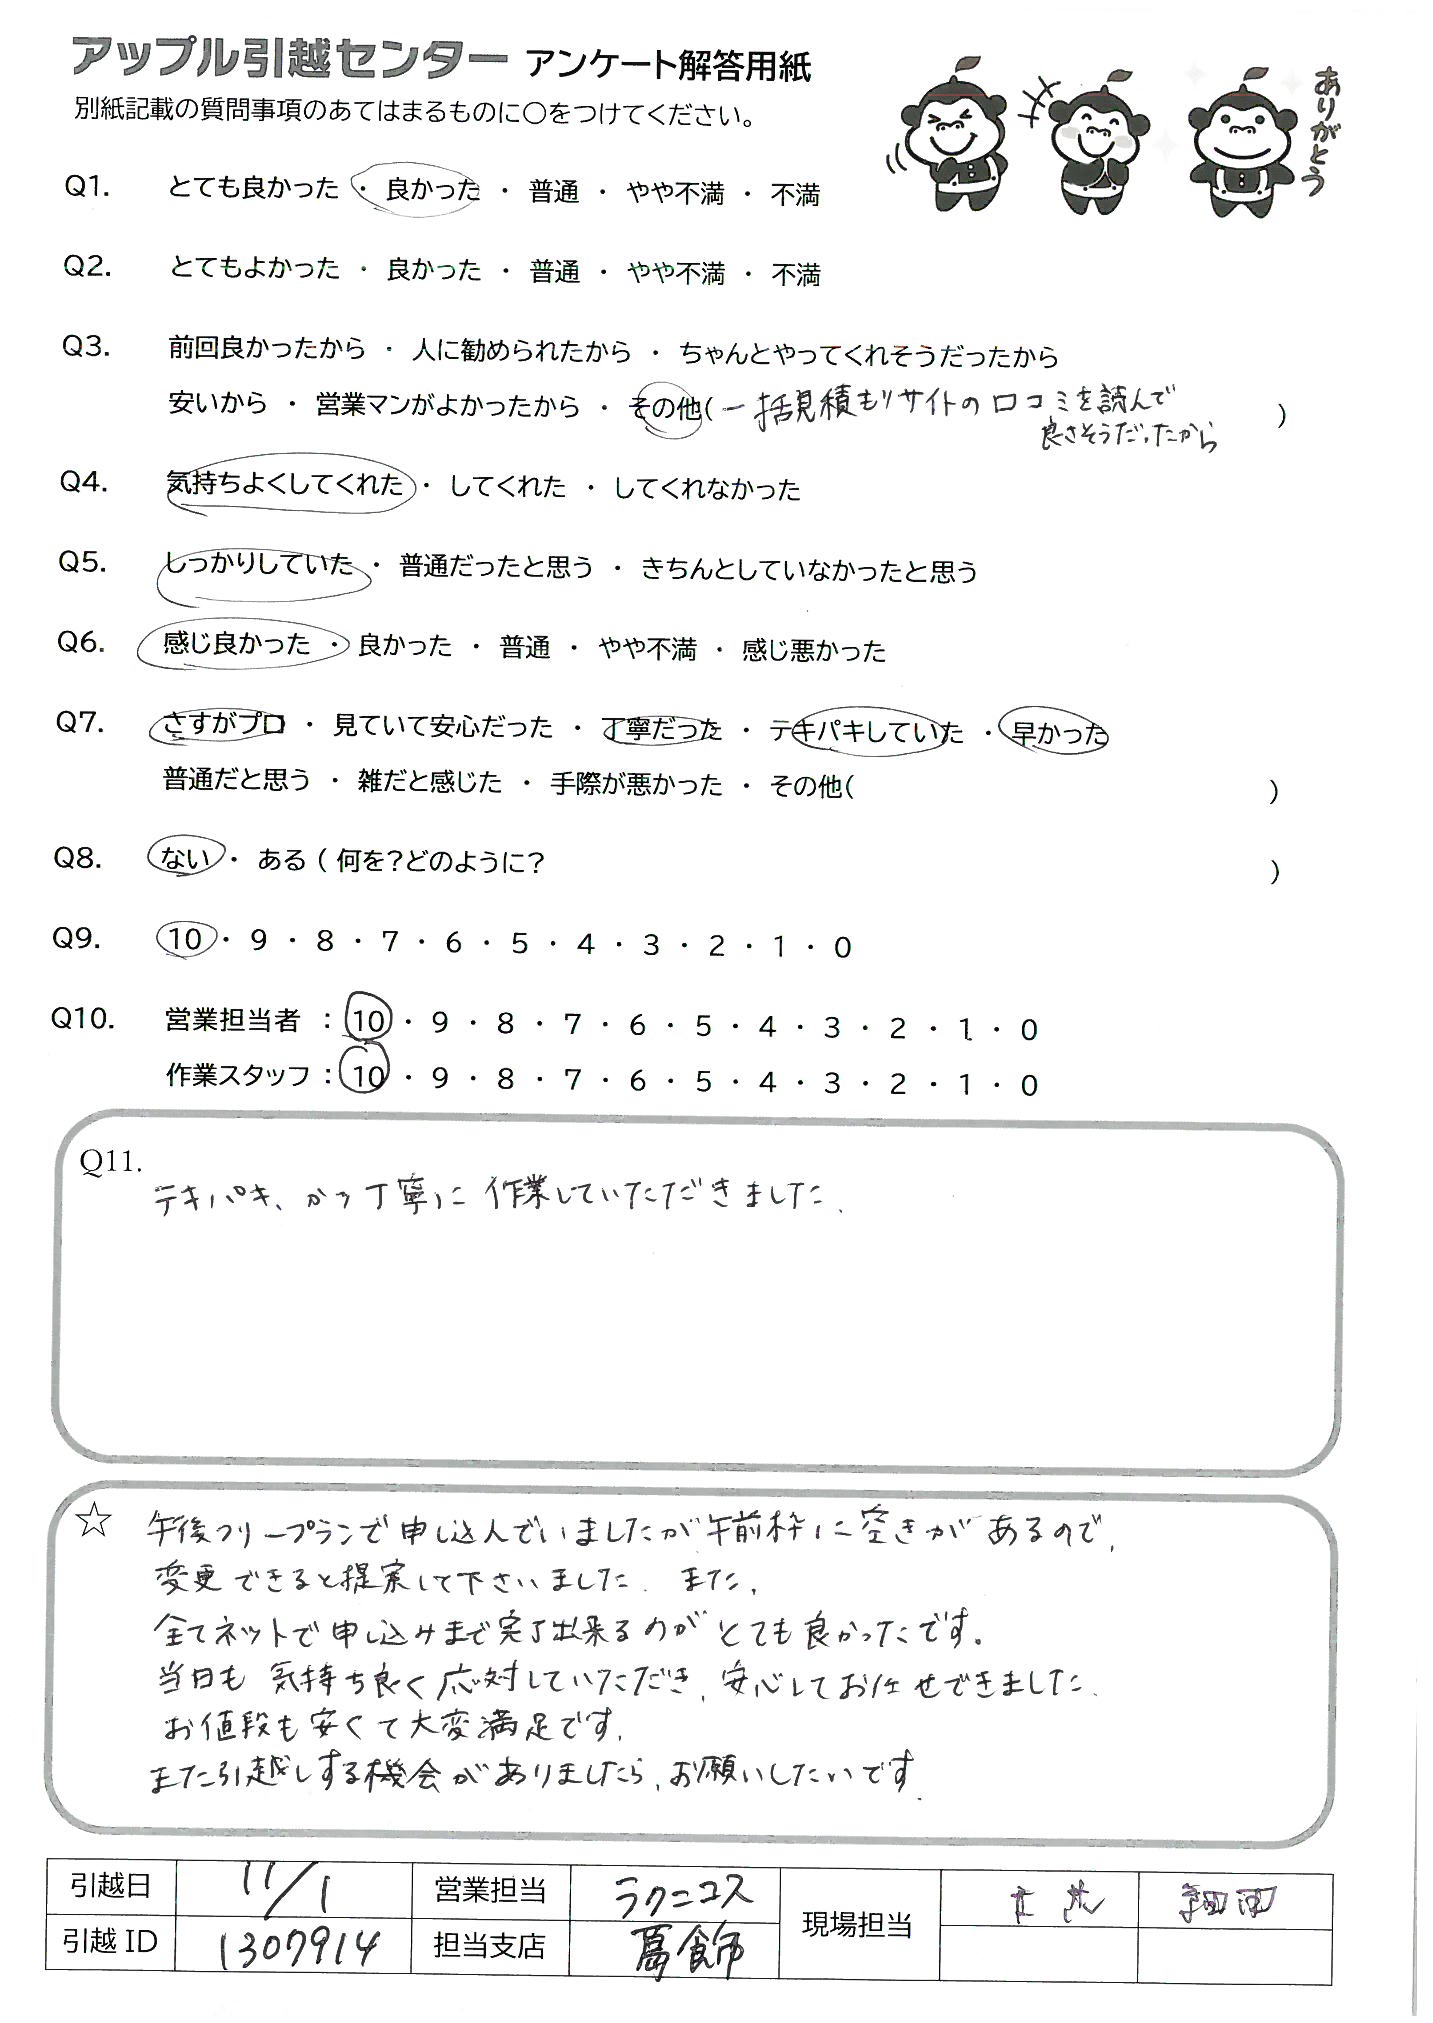 アップル引越センター アンケート解答用紙
別紙記載の質問事項のあてはまるものに○をつけてください。
ありがとう
Q1. とても良かった ・ 良かった ・ 普通 ・ やや不満 ・ 不満
Q2. とてもよかった ・ 良かった ・ 普通 ・ やや不満 ・ 不満
Q3. 前回良かったから ・ 人に勧められたから ・ ちゃんとやってくれそうだったから
安いから ・ 営業マンがよかったから ・ その他(一括見積もりサイトの口コミを読んで
良さそうだったから )
Q4. 気持ちよくしてくれた ・ してくれた ・ してくれなかった
Q5. しっかりしていた ・ 普通だったと思う ・ きちんとしていなかったと思う
Q6. 感じ良かった ・ 良かった ・ 普通 ・ やや不満 ・ 感じ悪かった
Q7. さすがプロ ・ 見ていて安心だった ・ 丁寧だった ・ テキパキしていた ・ 早かった
普通だと思う ・ 雑だと感じた ・ 手際が悪かった ・ その他( )
Q8. ない ・ ある ( 何を?どのように? )
Q9. 10 ・ 9 ・ 8 ・ 7 ・ 6 ・ 5 ・ 4 ・ 3 ・ 2 ・ 1 ・ 0
Q10. 営業担当者 : 10 ・ 9 ・ 8 ・ 7 ・ 6 ・ 5 ・ 4 ・ 3 ・ 2 ・ 1 ・ 0
作業スタッフ : 10 ・ 9 ・ 8 ・ 7 ・ 6 ・ 5 ・ 4 ・ 3 ・ 2 ・ 1 ・ 0
Q11.
テキパキ、かつ丁寧に作業していただきました.
☆ 午後フリープランで申し込んでいましたが午前枠に空きがあるので,
変更できると提案して下さいました. また,
全てネットで申し込みまで完了出来るのがとても良かったです。
当日も気持ち良く応対していただき, 安心してお任せできました.
お値段も安くて大変満足です.
また引越しする機会がありましたら, お願いしたいです.
引越日 11/1 営業担当 ラクニコス 現場担当 細田
引越 ID 1307914 担当支店 葛飾